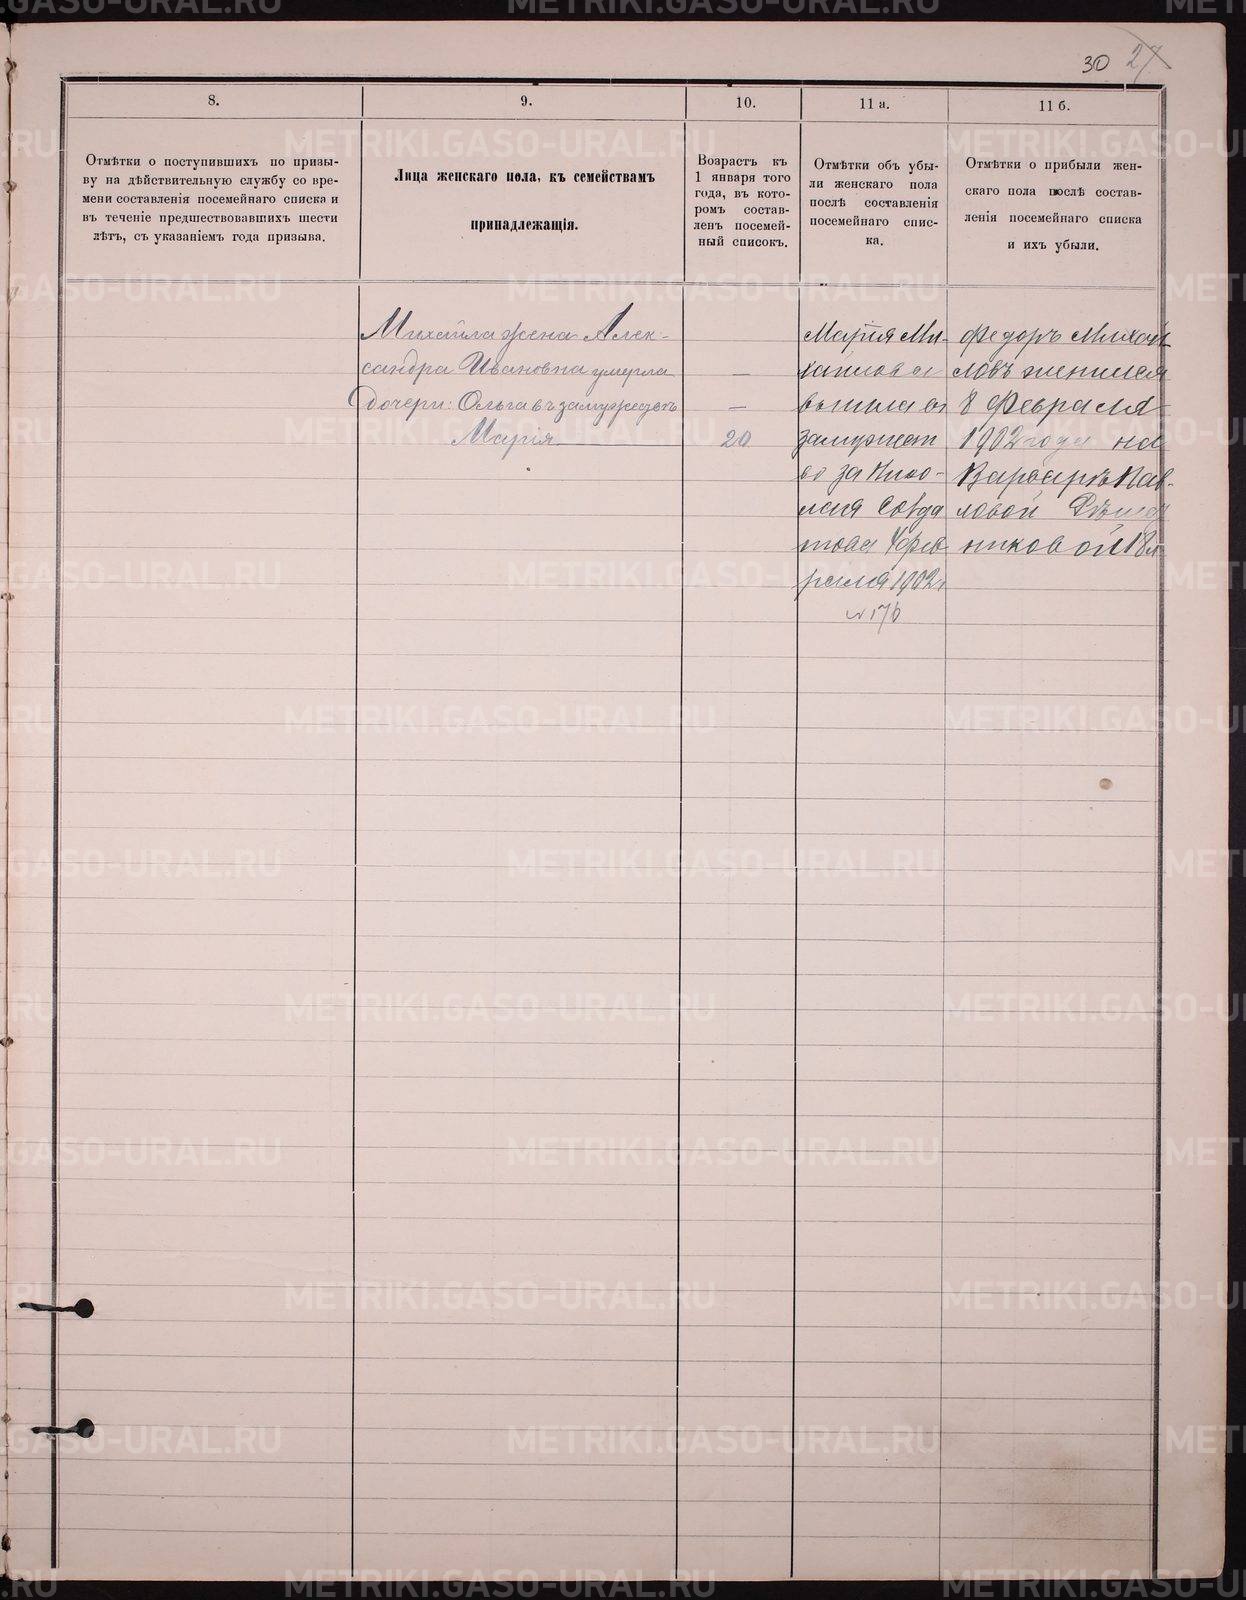 30 27
8.
9.
10.
11 а.
11 б.
Отмѣтки о поступившихъ по призы-
ву на дѣйствительную службу со вре-
мени составленія посемейнаго списка и
въ теченіе предшествовавшихъ шести
лѣтъ, съ указаніемъ года призыва.
Лица женскаго пола, къ семействамъ
принадлежащія.
Возрастъ къ
1 января того
года, въ кото-
ромъ состав-
ленъ посемей-
ный списокъ.
Отмѣтки объ убы-
ли женскаго пола
послѣ составленія
посемейнаго спис-
ка.
Отмѣтки о прибыли жен-
скаго пола послѣ состав-
ленія посемейнаго списка
и ихъ убыли.
Михайла жена Алек-
сандра Ивановна умерла —
Дочери: Ольга въ замужествѣ —
Марія 20
Марія Ми-
хайлова
вышла въ
замужест
во за Нико-
лая
4 фев
раля 1902 г
№ 176
Федоръ Михай
ловъ женился
8 Февраля
1902 года на
Варварѣ Пав-
ловой
18 л
METRIKI.GASO-URAL.RU